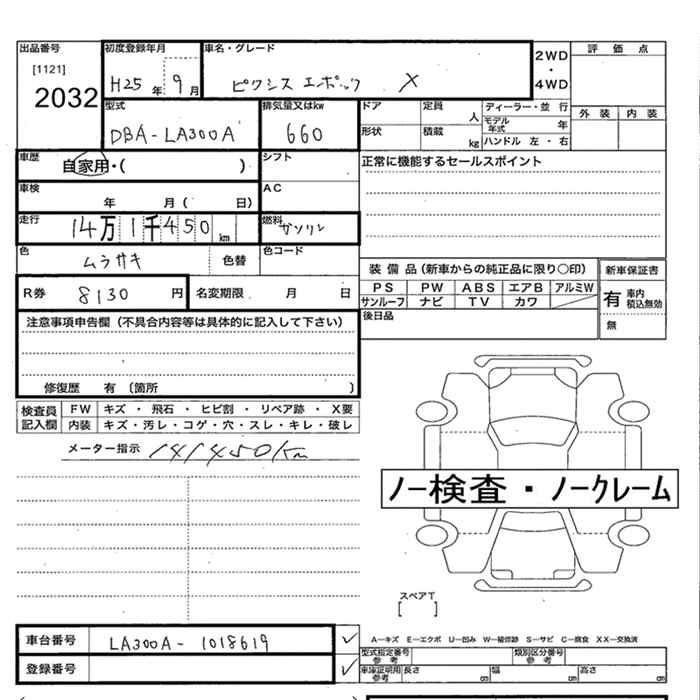 出品番号 初度登録年月 車名・グレード 2WD ・ 4WD 評価点
[1121]
2032 H25年 9月 ピクシス エポック X
型式 排気量又はkw ドア 定員 人 ディーラー・並行 外装 内装
DBA-LA300A 660 形状 積載 kg モデル年式 年
ハンドル 左・右
車歴 自家用・( ) シフト 正常に機能するセールスポイント
車検 年 月( 日) AC
走行 14万1千450km 燃料 ガソリン
色 ムラサキ 色替 色コード
装備品(新車からの純正品に限り○印) 新車保証書
R券 8130円 名変期限 月 日 PS PW ABS エアB アルミW 有 車内積込無効
サンルーフ ナビ TV カワ
注意事項申告欄(不具合内容等は具体的に記入して下さい) 後日品 無
修復歴 有(箇所 )
検査員記入欄 FW キズ・飛石・ヒビ割・リペア跡・X要
内装 キズ・汚レ・コゲ・穴・スレ・キレ・破レ
メーター指示 141450km
ノー検査・ノークレーム
スペアT
[ ]
車台番号 LA300A-1018619 ✓ A―キズ E―エクボ U―凹み W―補修跡 S―サビ C―腐食 XX―交換済
登録番号 ✓ 型式指定番号 参考 類別区分番号 参考
車庫証明用 参考 長さ cm 幅 cm 高さ cm